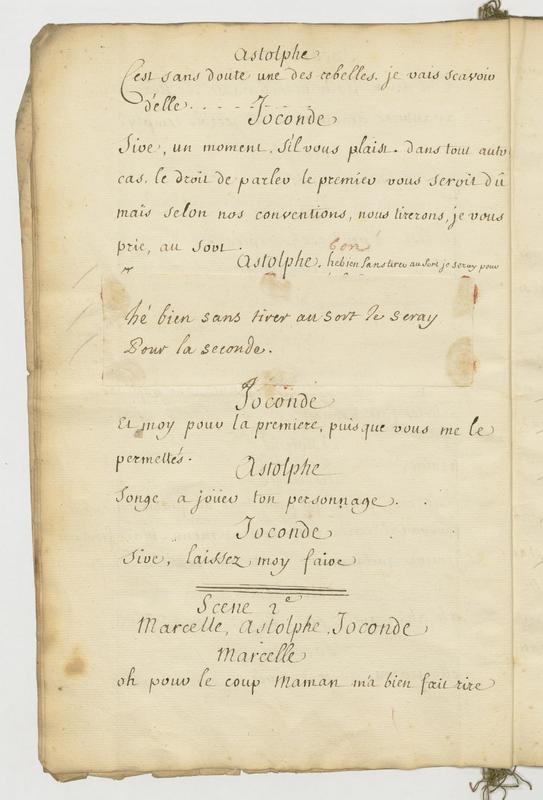 Astolphe
C'est sans doute une des cebelles. je vais scavoir
d'elle . . . . . . . .
Joconde
Sire, un moment. S'il vous plaist. dans tout autre
cas, le droit de parler le premier vous seroit dû
mais selon nos conventions, nous tirerons, je vous
prie, au sort.
bon
Astolphe. hebien sans tirer au sort je seray pour
hé bien sans tirer au sort je seray
Pour la seconde.
Joconde
Et moy pour la premiere, puisque vous me le
permettés.
Astolphe
Songe a joüer ton personnage.
Joconde
Sire, laissez moy faire
Scene 2e
Marcelle, Astolphe, Joconde
Marcelle
oh pour le coup Maman m'a bien fait rire